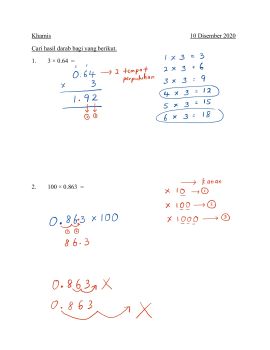 Khamis 10 Disember 2020
Cari hasil darab bagi yang berikut.
1. 3 × 0.64 =
0.64 → 2 tempat
perpuluhan
× 3
1.92
1 × 3 = 3
2 × 3 = 6
3 × 3 = 9
4 × 3 = 12
5 × 3 = 15
6 × 3 = 18
2. 100 × 0.863 =
0.863 × 100
86.3
→ kanan
× 10 → 1
× 100 → 2
× 1000 → 3
0.863 X
0.863 X